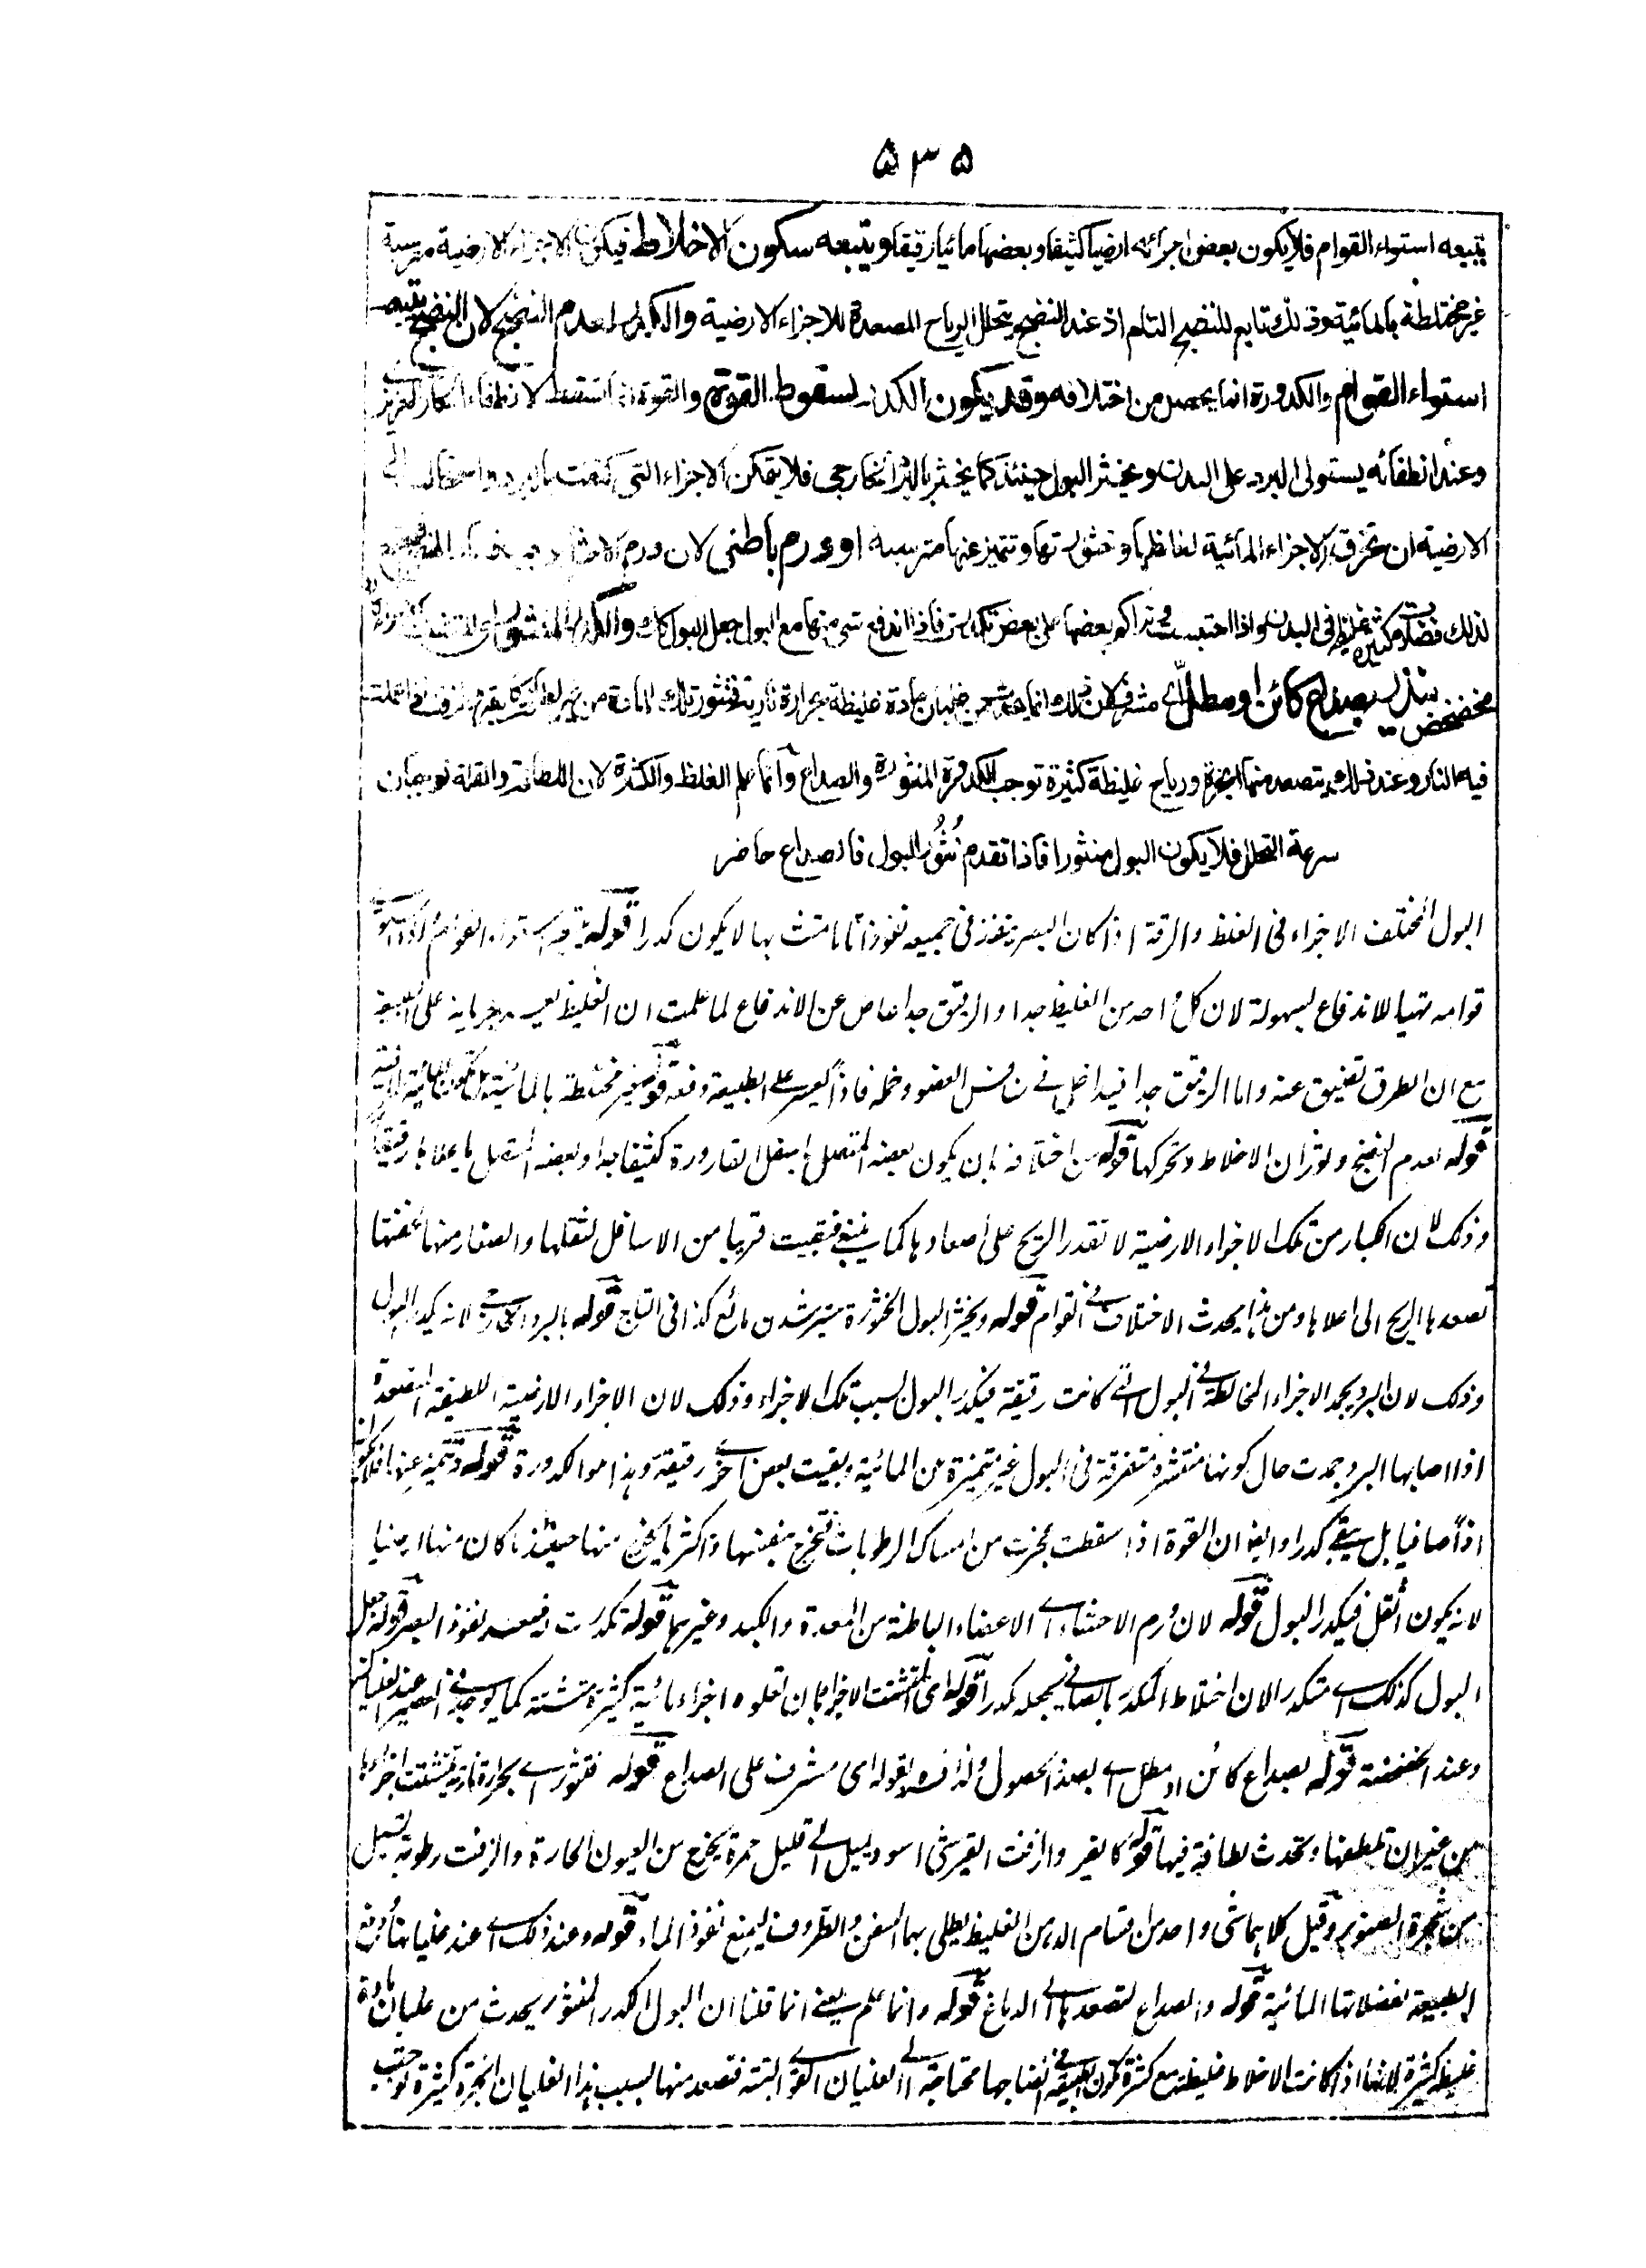 ۵۳۵
يتبعه استواء القوام فلا يكون بعض اجزائه ارضيا كثيفا وبعضها مائيا رقيقا ويتبعه سكون الاخلاط فيكون الاجزاء الارضية مترسبة
غير مختلطة بالمائية وذلك تابع للنضج التام اذ عند النضج يتحلل الرياح المصعدة للاجزاء الارضية والكدر لعدم النضج لان النضج يتبعه
استواء القوام والكدورة انما يحصل من اختلافه وقد يكون الكدر لسقوط القوة والقوة انما تسقط لانطفاء الحار الغريزي
وعند انطفائه يستولى البرد على البدن ويخثر البول حينئذ كما يخثر بالبرد الخارجي فلا يتمكن الاجزاء التي كثفت بالبرد واستحالت الى
الارضية ان تخرق الاجزاء المائية لغلظها وخثورتها وتتميز عنها مترسبة او ورم باطنى لان ورم الاحشاء
لذلك فضلات كثيرة غليظة في البدن واذا احتبست وتراكم بعضها على بعض تكدرت فاذا اندفع شئ منها مع البول جعل البول كذلك والكدر المنثور
مخضخض ينذر بصداع كائن او مطل اى مشرف لان ذلك انما يحدث من غليان مادة غليظة بحرارة نارية فتثور تلك المادة من غير لطافة كالقير والزفت اذا عملت
فيه النار وعند ذلك يتصعد منها ابخرة ورياح غليظة كثيرة توجب الكدورة المنثورة والصداع وانما علم الغلظ والكثرة لان اللطافة والقلة توجبان
سرعة التحلل فلا يكون البول منثورا فاذا تقدم نثور البول فالصداع حاضر
البول المختلف الاجزاء فى الغلظ والرقة اذا كان البصر ينفذ فى جميعه نفوذا تاما متشابها لا يكون كدرا قوله يتبعه استواء القوام
قوامه تهيا للاندفاع بسهولة لان كل واحد من الغليظ جدا والرقيق جدا عاص عن الاندفاع لما علمت ان الغليظ يعسر جريانه على الطبيعة
مع ان الطرق تضيق عنه واما الرقيق جدا فيداخل فى نفس العضو وخمله فاذا يعسر على الطبيعة دفعه قوله غير مختلطة بالمائية
قوله لعدم النضج وثوران الاخلاط وتحركها قوله من اختلافه بان يكون بعضه المتصل باسفل القارورة كثيفا جدا وبعضه المتصل باعلاها رقيقا
وذلك لان الكبار من تلك الاجزاء الارضية لا تقدر الريح على اصعادها كما ينبغى فبقيت قريبا من الاسافل لثقلها والصغار منها لخفتها
تصعدها الريح الى اعلاها ومن هذا يحدث الاختلاف فى القوام قوله ويخثر البول الخثورة ستبر شدن مائع كذا فى التاج قوله بالبرد الخارجى لانه يكدر البول
وذلك لان البرد يجمد الاجزاء المخالطة فى البول التى كانت رقيقة فيكدر البول بسبب تلك الاجزاء وذلك لان الاجزاء الارضية اللطيفة المتصعدة
اذا اصابها البرد جمدت حال كونها منتشرة متفرقة فى البول غير متميزة من المائية وبقيت بعض اخر رقيقة وهذا هو الكدورة قوله وتتميز عنها فلا يكون
اذا صافيا بل يبقى كدرا وايضا ان القوة اذا سقطت عجزت من امساك الرطوبات فتخرج بنفسها واكثر ما يخرج منها حينئذ ما كان منها ارضيا
لانه يكون اثقل فيكدر البول قوله لان ورم الاحشاء اى الاعضاء الباطنة من المعدة والكبد وغيرها قوله تكدرت فيعسر نفوذ البصر قوله جعل
البول كذلك اى متكدرا لان اختلاط المكدر بالصافى يجعله كدرا قوله اى المتشتت الاجزاء بان تعلوه اجزاء مائية كثيرة متشتة كما يوجد فى العصير عند الغليان
وعند الخضخضة قوله بصداع كائن او مطل اى بصدد الحصول ولذا فسره بقوله اى مشرف على الصداع قوله فتثور اى بحرارة نارية تتشتت اجزاءها
من غير ان تلطفها وتحدث لطافة فيها قوله كالقير والزفت القير شئ اسود يميل الى قليل حمرة يخرج من العيون الحارة والزفت رطوبة تسيل
من شجرة الصنوبر وقيل كلاهما شئ واحد من اقسام الدهن الغليظ يطلى بها السفن والظروف ليمنع نفوذ الماء قوله وعند ذلك اى عند غليانها ودفع
الطبيعة بفضلاتها المائية قوله والصداع لتصعدها الى الدماغ قوله وانما علم يعنى انما قلنا ان البول الكدر المنثور يحدث من غليان مادة
غليظة كثيرة لانها اذا كانت الاخلاط غليظة مع كثرة تكون الطبيعة فى انضاجها محتاجة الى الغليان القوى البتة فتصعد منها بسبب هذا الغليان ابخرة كثيرة توجب